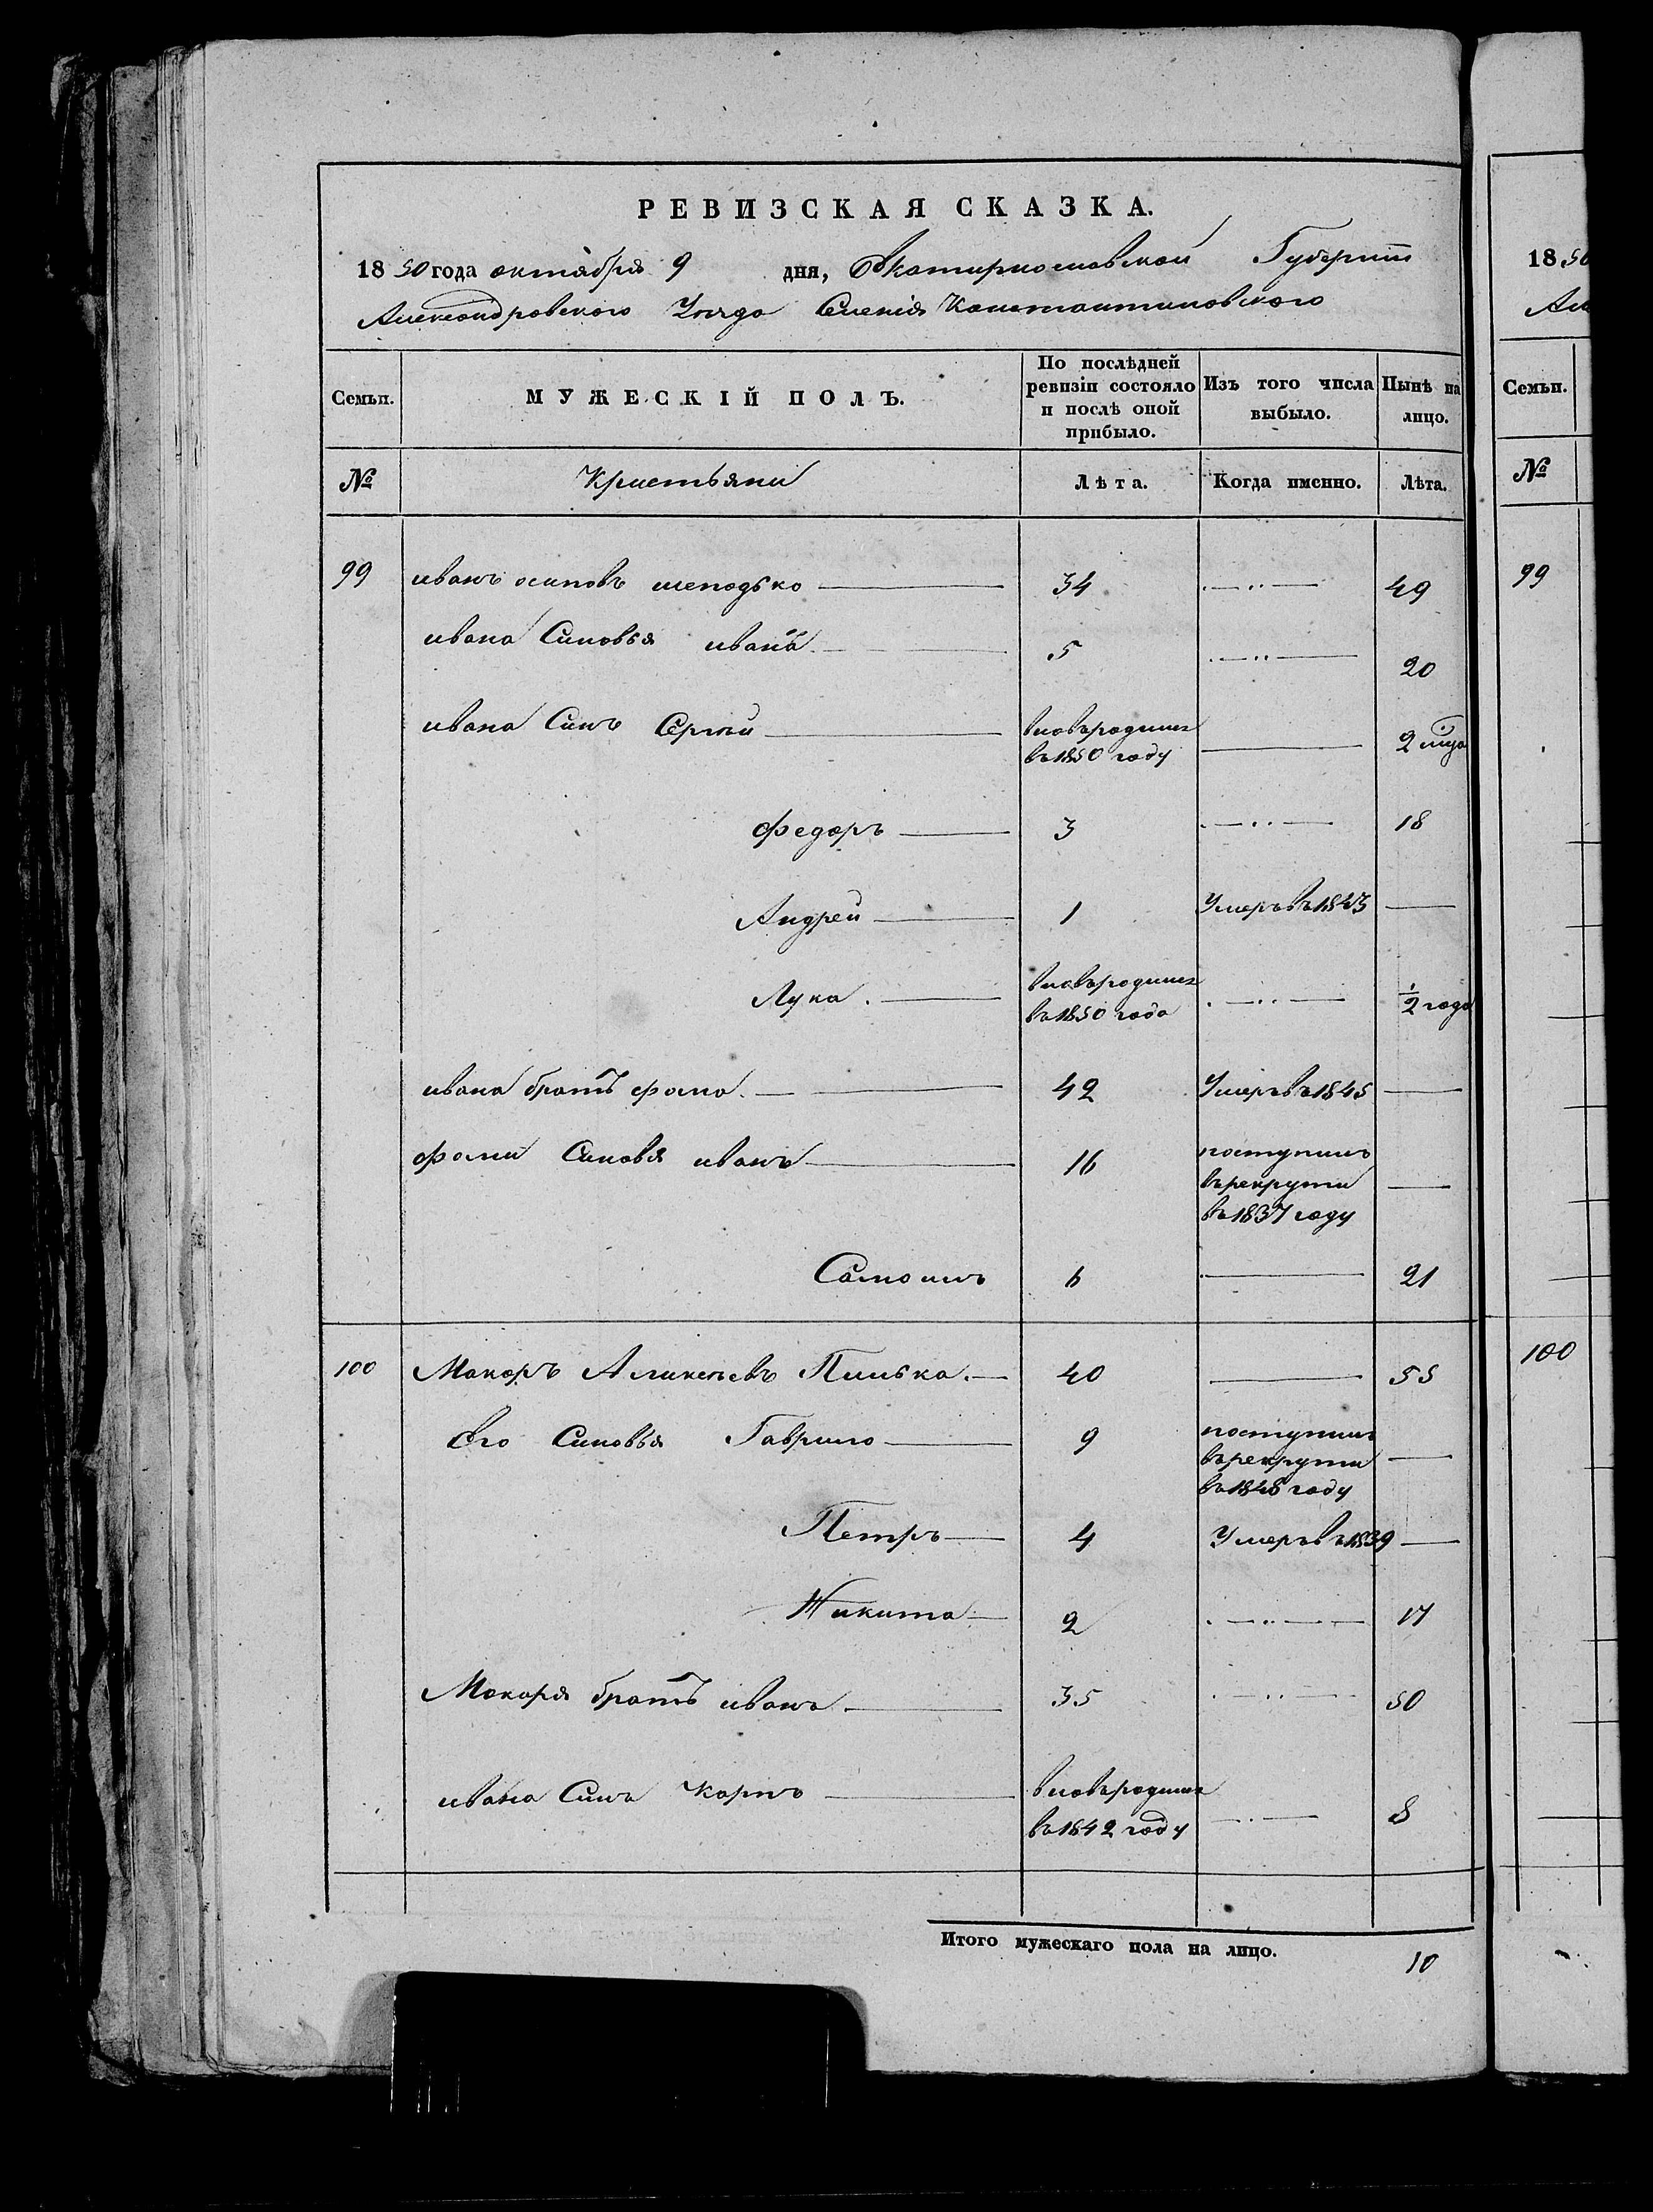 РЕВИЗСКАЯ СКАЗКА.
1850 года октября 9 дня, Екатирнославской Губернии
Александровского Уезда Селения Константиновского
Семьи.
МУЖЕСКІЙ ПОЛЪ.
По послѣдней ревизіи состояло и послѣ оной прибыло.
Изъ того числа выбыло.
Нынѣ на лицо.
№
Кристьяни
Лѣта.
Когда именно.
Лѣта.
99 иванъ осиповъ шеподько 34 49
ивана Синовья иванъ 5 20
ивана Синъ Сергѣй вновьродилпя въ 1850 году 2 мца
федоръ 3 18
Андрей 1 Умеръ въ 1843
Лука. вновьродился въ 1850 года ½ года
ивана братъ фома. 42 Умеръ въ 1845
фоми Синовя иванъ 16 поступилъ
въ рекрути
въ 1837 году
Самоилъ 6 21
100 Макаръ Аликсѣевъ Пилька. 40 55
Его Синовья Гаврило 9 поступилъ
въ рекрути
въ 1848 году
Петръ 4 Умеръ въ 1839
Никита 2 17
Макаря братъ иванъ 35 50
ивана Синъ Карпъ вновьродился
въ 1842 году 8
Итого мужескаго пола на лицо. 10
1850
Ал
Семьи.
№
99
100